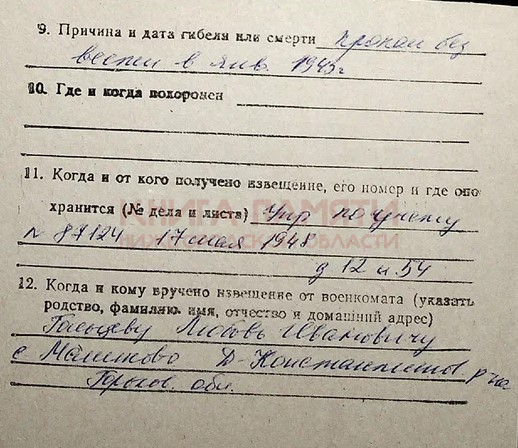 9. Причина и дата гибели или смерти пропал без
вести в янв. 1943г
10. Где и когда похоронен
11. Когда и от кого получено извещение, его номер и где опо
хранится (№ дела и листа) Упр по учету
КНИГА ПАМЯТИ
НИЖЕГОРОДСКОЙ ОБЛАСТИ
N 87124 17 мая 1948
д 12 л 54
12. Когда и кому вручено извещение от военкомата (указать
родство, фамилию, имя, отчество и домашний адрес)
Иванович
с Малиново Д-Константинов р-на
Горьков. обл.